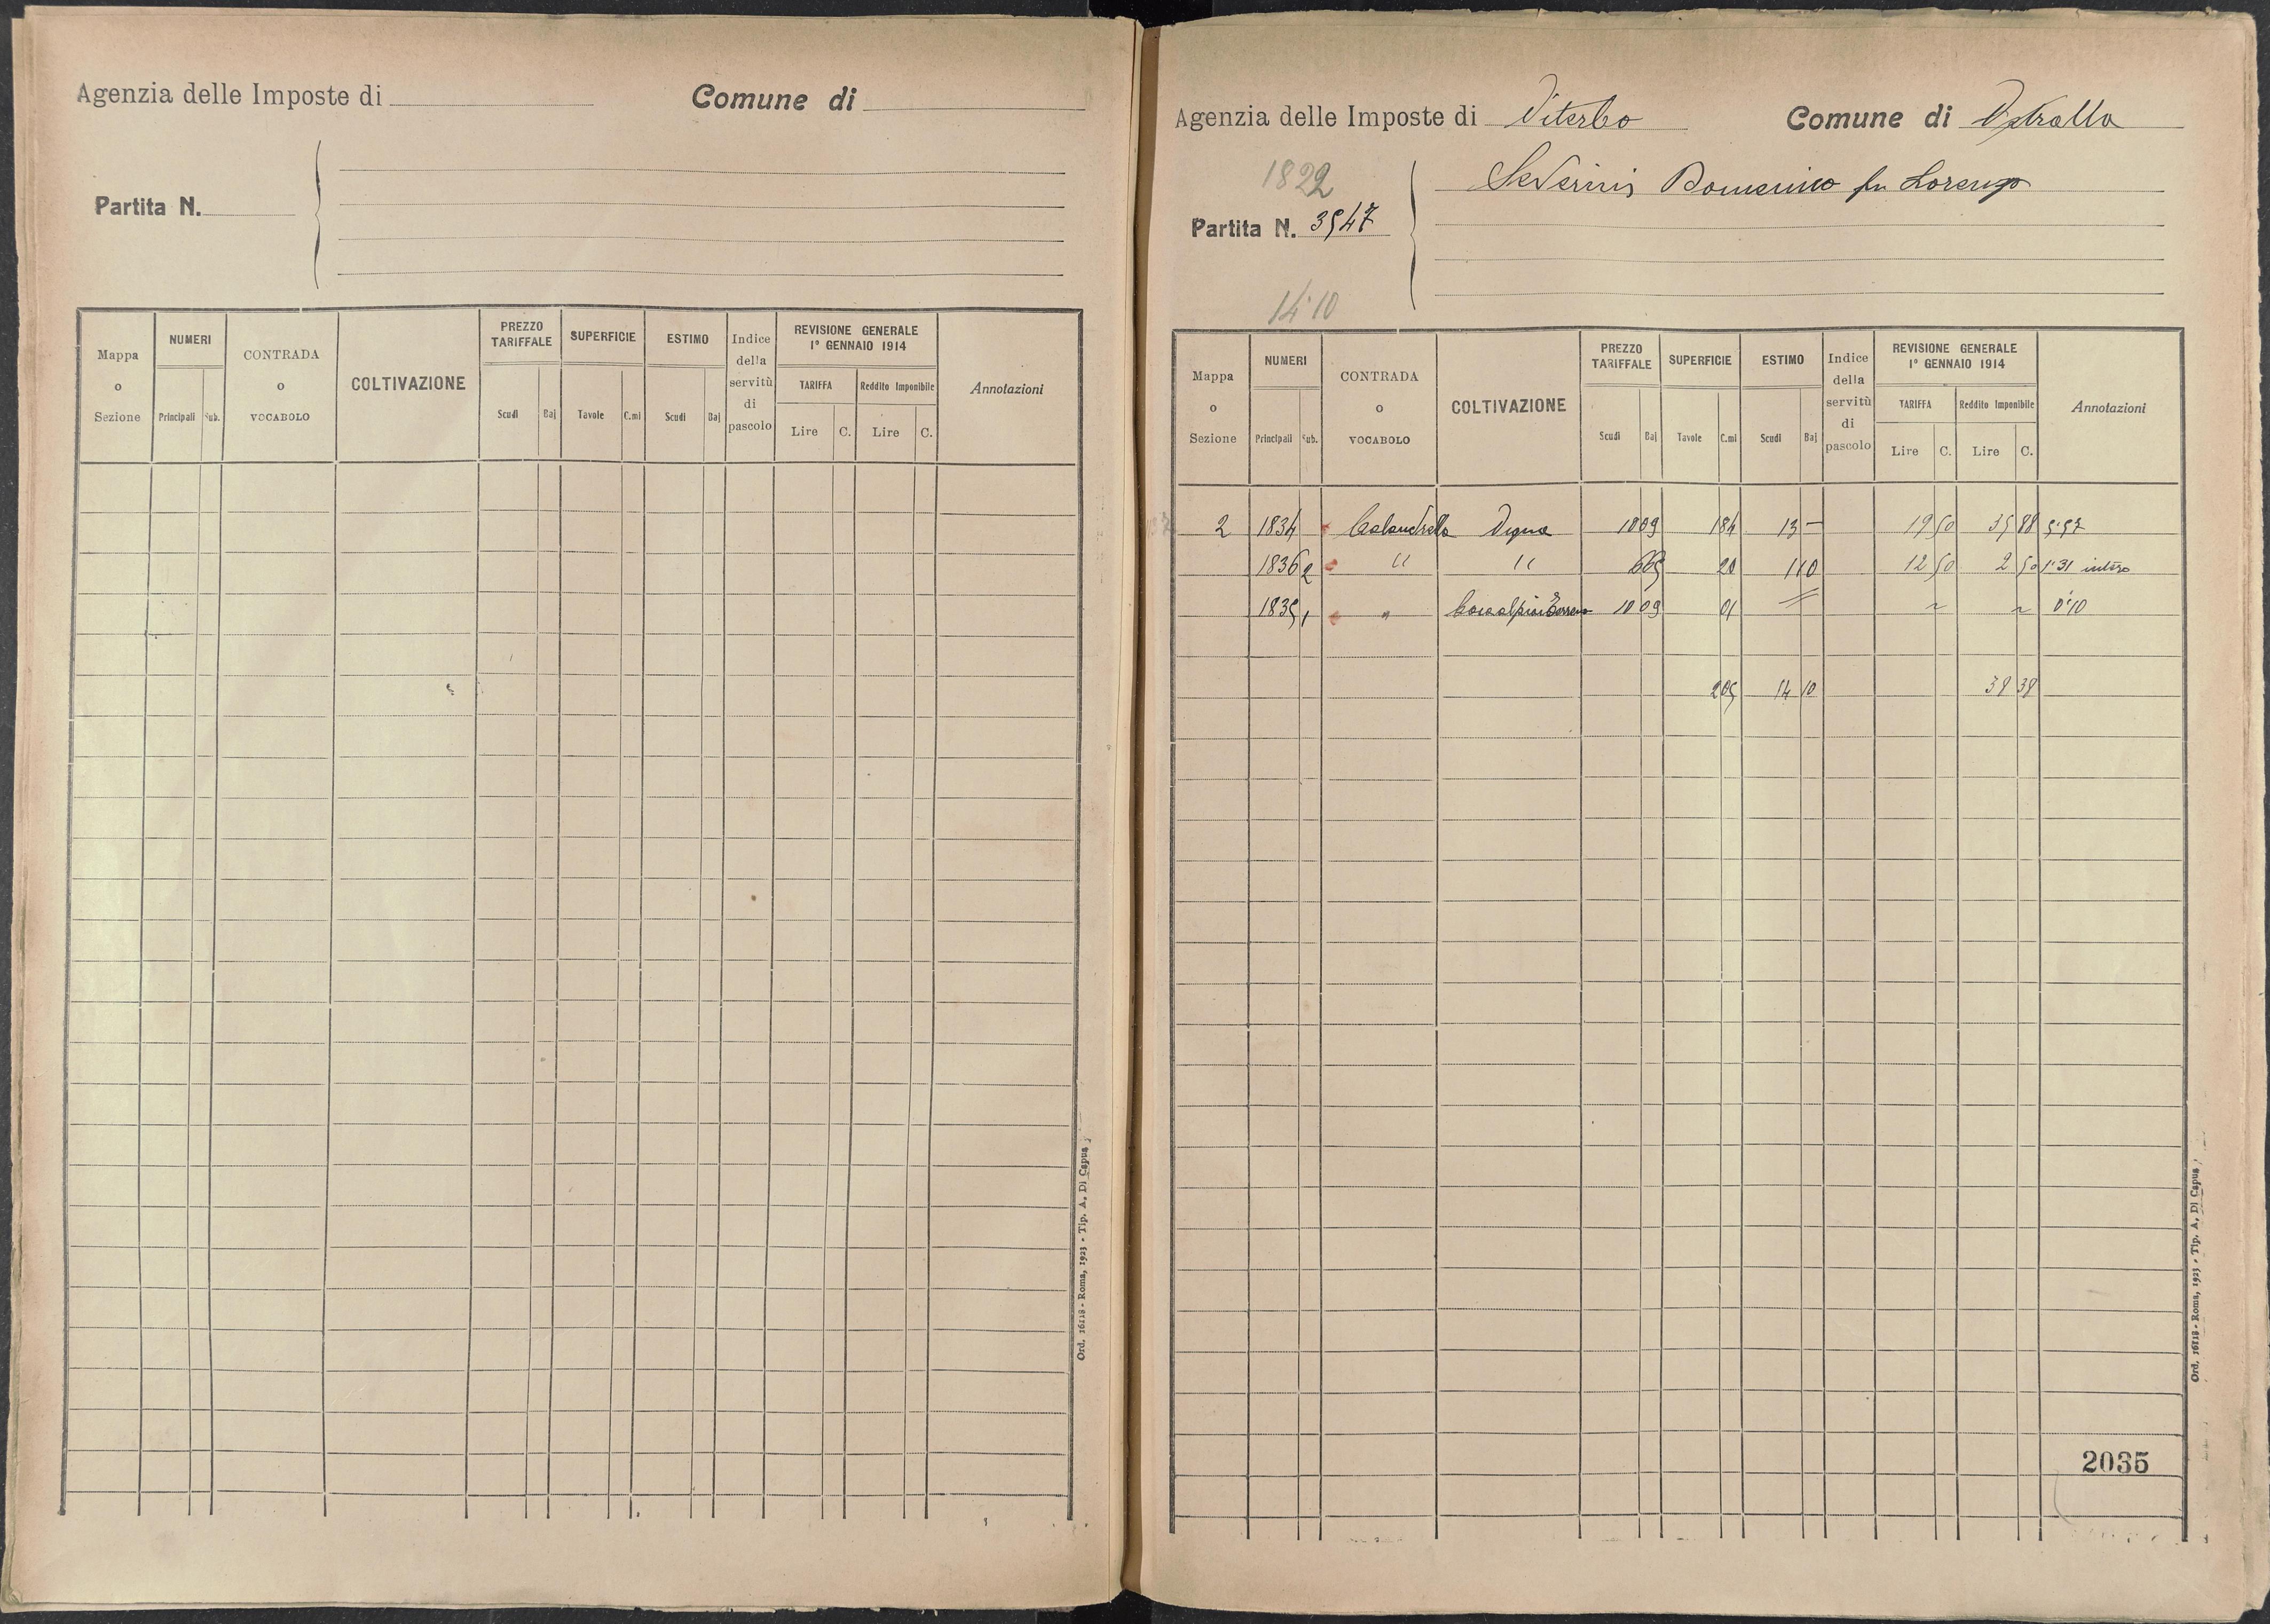 Agenzia delle Imposte di Comune di
Partita N.
Mappa o Sezione NUMERI Principali Sub. CONTRADA o VOCABOLO COLTIVAZIONE PREZZO TARIFFALE Scudi Baj SUPERFICIE Tavole C.mi ESTIMO Scudi Baj Indice della servitù di pascolo REVISIONE GENERALE 1° GENNAIO 1914 TARIFFA Lire C. Reddito Imponibile Lire C. Annotazioni
Ord. 16118 - Roma, 1923 - Tip. A. Di Capua
Agenzia delle Imposte di Viterbo Comune di Vetralla
1822
Severinis Domenico fu Lorenzo
Partita N. 3547
14.10
Mappa o Sezione NUMERI Principali Sub. CONTRADA o VOCABOLO COLTIVAZIONE PREZZO TARIFFALE Scudi Baj SUPERFICIE Tavole C.mi ESTIMO Scudi Baj Indice della servitù di pascolo REVISIONE GENERALE 1° GENNAIO 1914 TARIFFA Lire C. Reddito Imponibile Lire C. Annotazioni
2 1834 Calandrella Vigna 10 09 1 84 13 — 19 50 35 88 5.57
1836 2 " " 6 65 20 1 10 12 50 2 50 1.31 intero
1835 1 " 10 09 01 = ~ ~ 0.10
2 05 14 10 38 38
2035
Ord. 16118 - Roma, 1923 - Tip. A. Di Capua